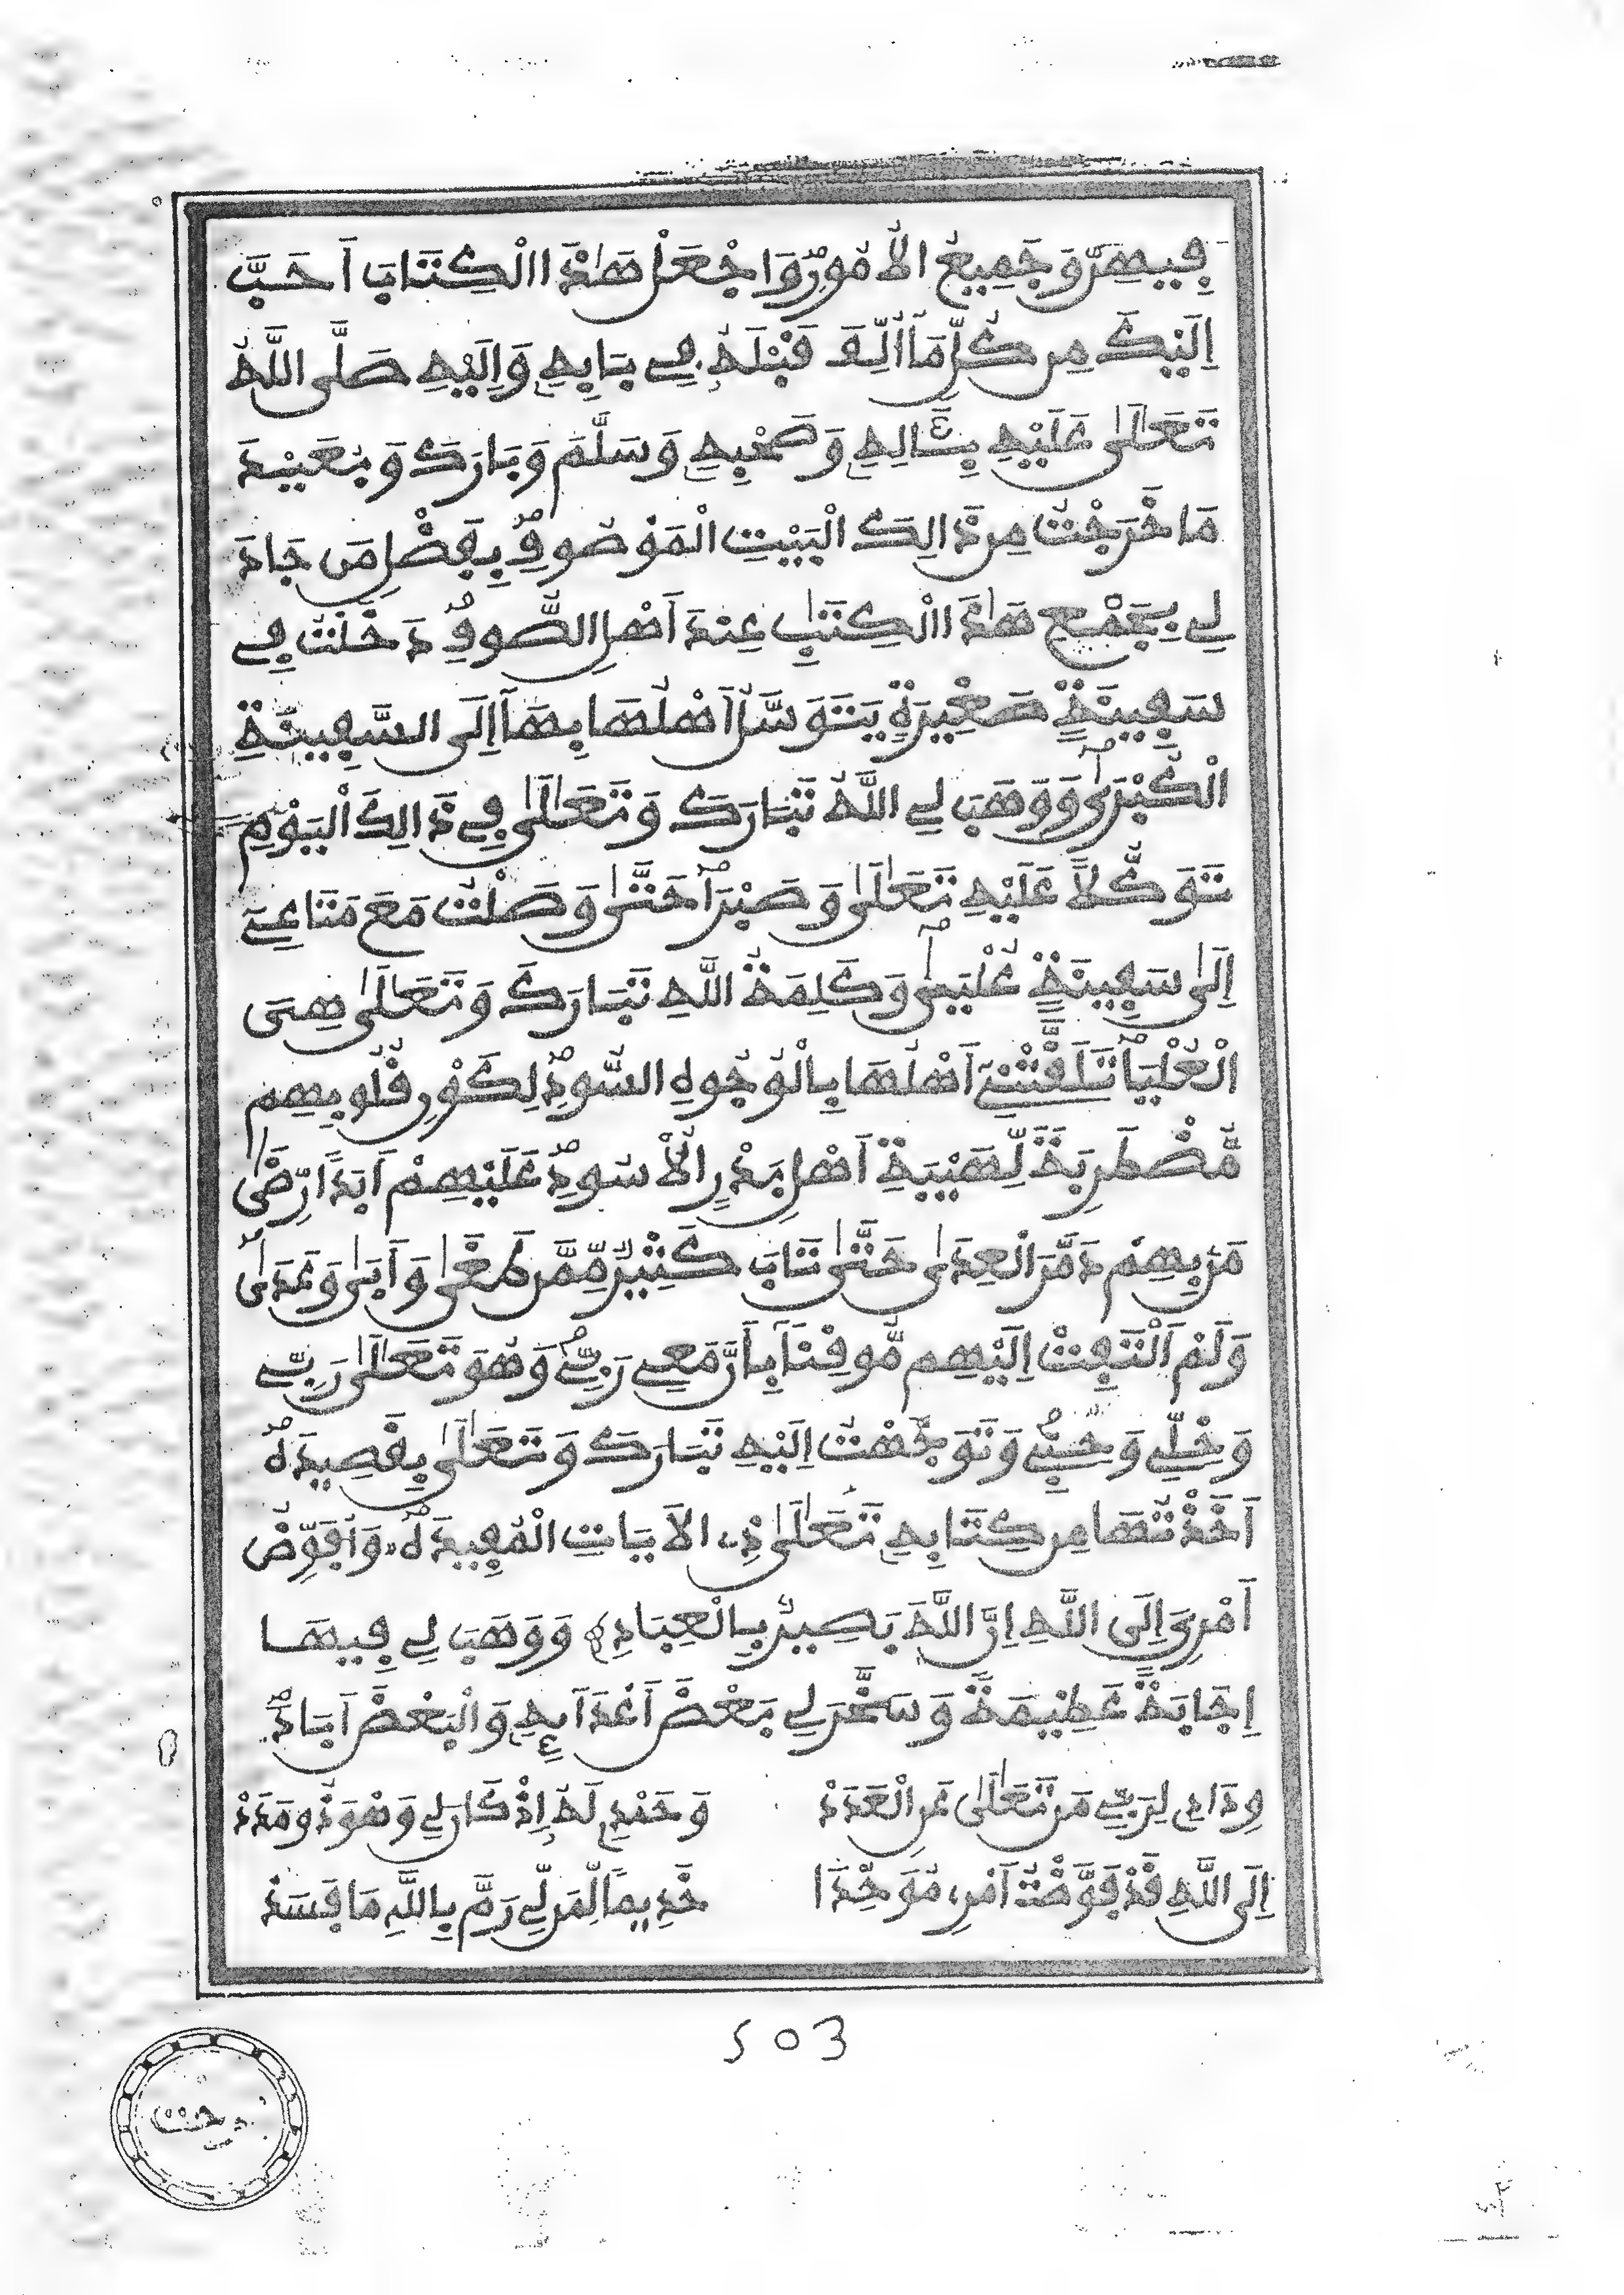 فِيهِنَّ وَجَمِيعِ الاُمُورِ وَاجْعَلْ هَٰذَا الْكِتَابَ أَحَبَّ
إِلَيْكَ مِن كُلِّ مَا أُلِّفَ قَبْلَهُ فِي بَابِهِ وَإِلَيْهِ صَلَّى اللَّهُ
تَعَالَىٰ عَلَيْهِ بِـَٔالِهِ وَصَحْبِهِ وَسَلَّمَ وَبَارَكَ وَبُعَيْدَ
مَا خَرَجْتُ مِن ذَالِكَ الْبَيْتِ الْمَوْصُوفِ بِفَضْلِ مَن جَادَ
لِي بِجَمْعِ هَٰذَا الْكِتَٰبِ عِندَ أَهْلِ الصُّوفِ دَخَلْتُ فِي
سَفِينَةٍ صَغِيرَةٍ يَتَوَسَّلُ أَهْلُهَا بِهَا إِلَى السَّفِينَةِ
الْكُبْرَىٰ وَوَهَبَ لِي اللَّهُ تَبَارَكَ وَتَعَالَىٰ فِي ذَالِكَ الْيَوْمِ
تَوَكُّلاً عَلَيْهِ تَعَالَىٰ وَصَبْراً حَتَّىٰ وَصَلْتُ مَعَ مَتَاعِي
إِلَىٰ سَفِينَةٍ عُلْيَىٰ وَكَلِمَةُ اللَّهِ تَبَارَكَ وَتَعَالَىٰ هِيَ
الْعُلْيَا تَلَقَّتْنِي أَهْلُهَا بِالْوُجُوهِ السُّودِ لِكَوْنِ قُلُوبِهِم
مُّضْطَرِبَةً لِّهَيْبَةِ أَهْلِ بَدْرٍ الأُسُودِ عَلَيْهِمْ أَبَداً رِّضَىٰ
مَن بِهِمْ دَمَّرَ الْعِدَىٰ حَتَّىٰ تَابَ كَثِيرٌ مِّمَّن طَغَىٰ وَأَبَىٰ وَعَدَىٰ
وَلَمْ أَلْتَفِتْ إِلَيْهِم مُّوقِنًا بِأَنَّ مَعِي رَبِّي وَهُوَ تَعَالَىٰ رَبِّي
وَخِلِّي وَحِبِّي وَتَوَجَّهْتُ إِلَيْهِ تَبَارَكَ وَتَعَالَىٰ بِقَصِيدَه
أَخَذْتُهَا مِن كِتَابِهِ تَعَالَىٰ ذِي الآيَاتِ الْمُفِيدَه وَأُفَوِّضُ
أَمْرِيَ إِلَى اللَّهِ إِنَّ اللَّهَ بَصِيرٌ بِالْعِبَادِ وَوَهَبَ لِي فِيهَا
إِجَابَةً عَظِيمَةً وَسَخَّرَ لِي بَعْضَ أَعْدَآئِهِ وَالْبَعْضَ أَبَادَ
وِدَادِي لِرَبِّي مَن تَعَالَىٰ عَنِ الْعَدَدْ وَحَمْدِي لَهُ إِذْ كَانَ لِي وَهْوَ ذُو مَدَدْ
إِلَى اللَّهِ قَدْ فَوَّضْتُ أَمْرِي مُوَحِّدَا خَدِيماً لِّمَن لِّي رَمَّ بِاللَّهِ مَا فَسَدْ
503